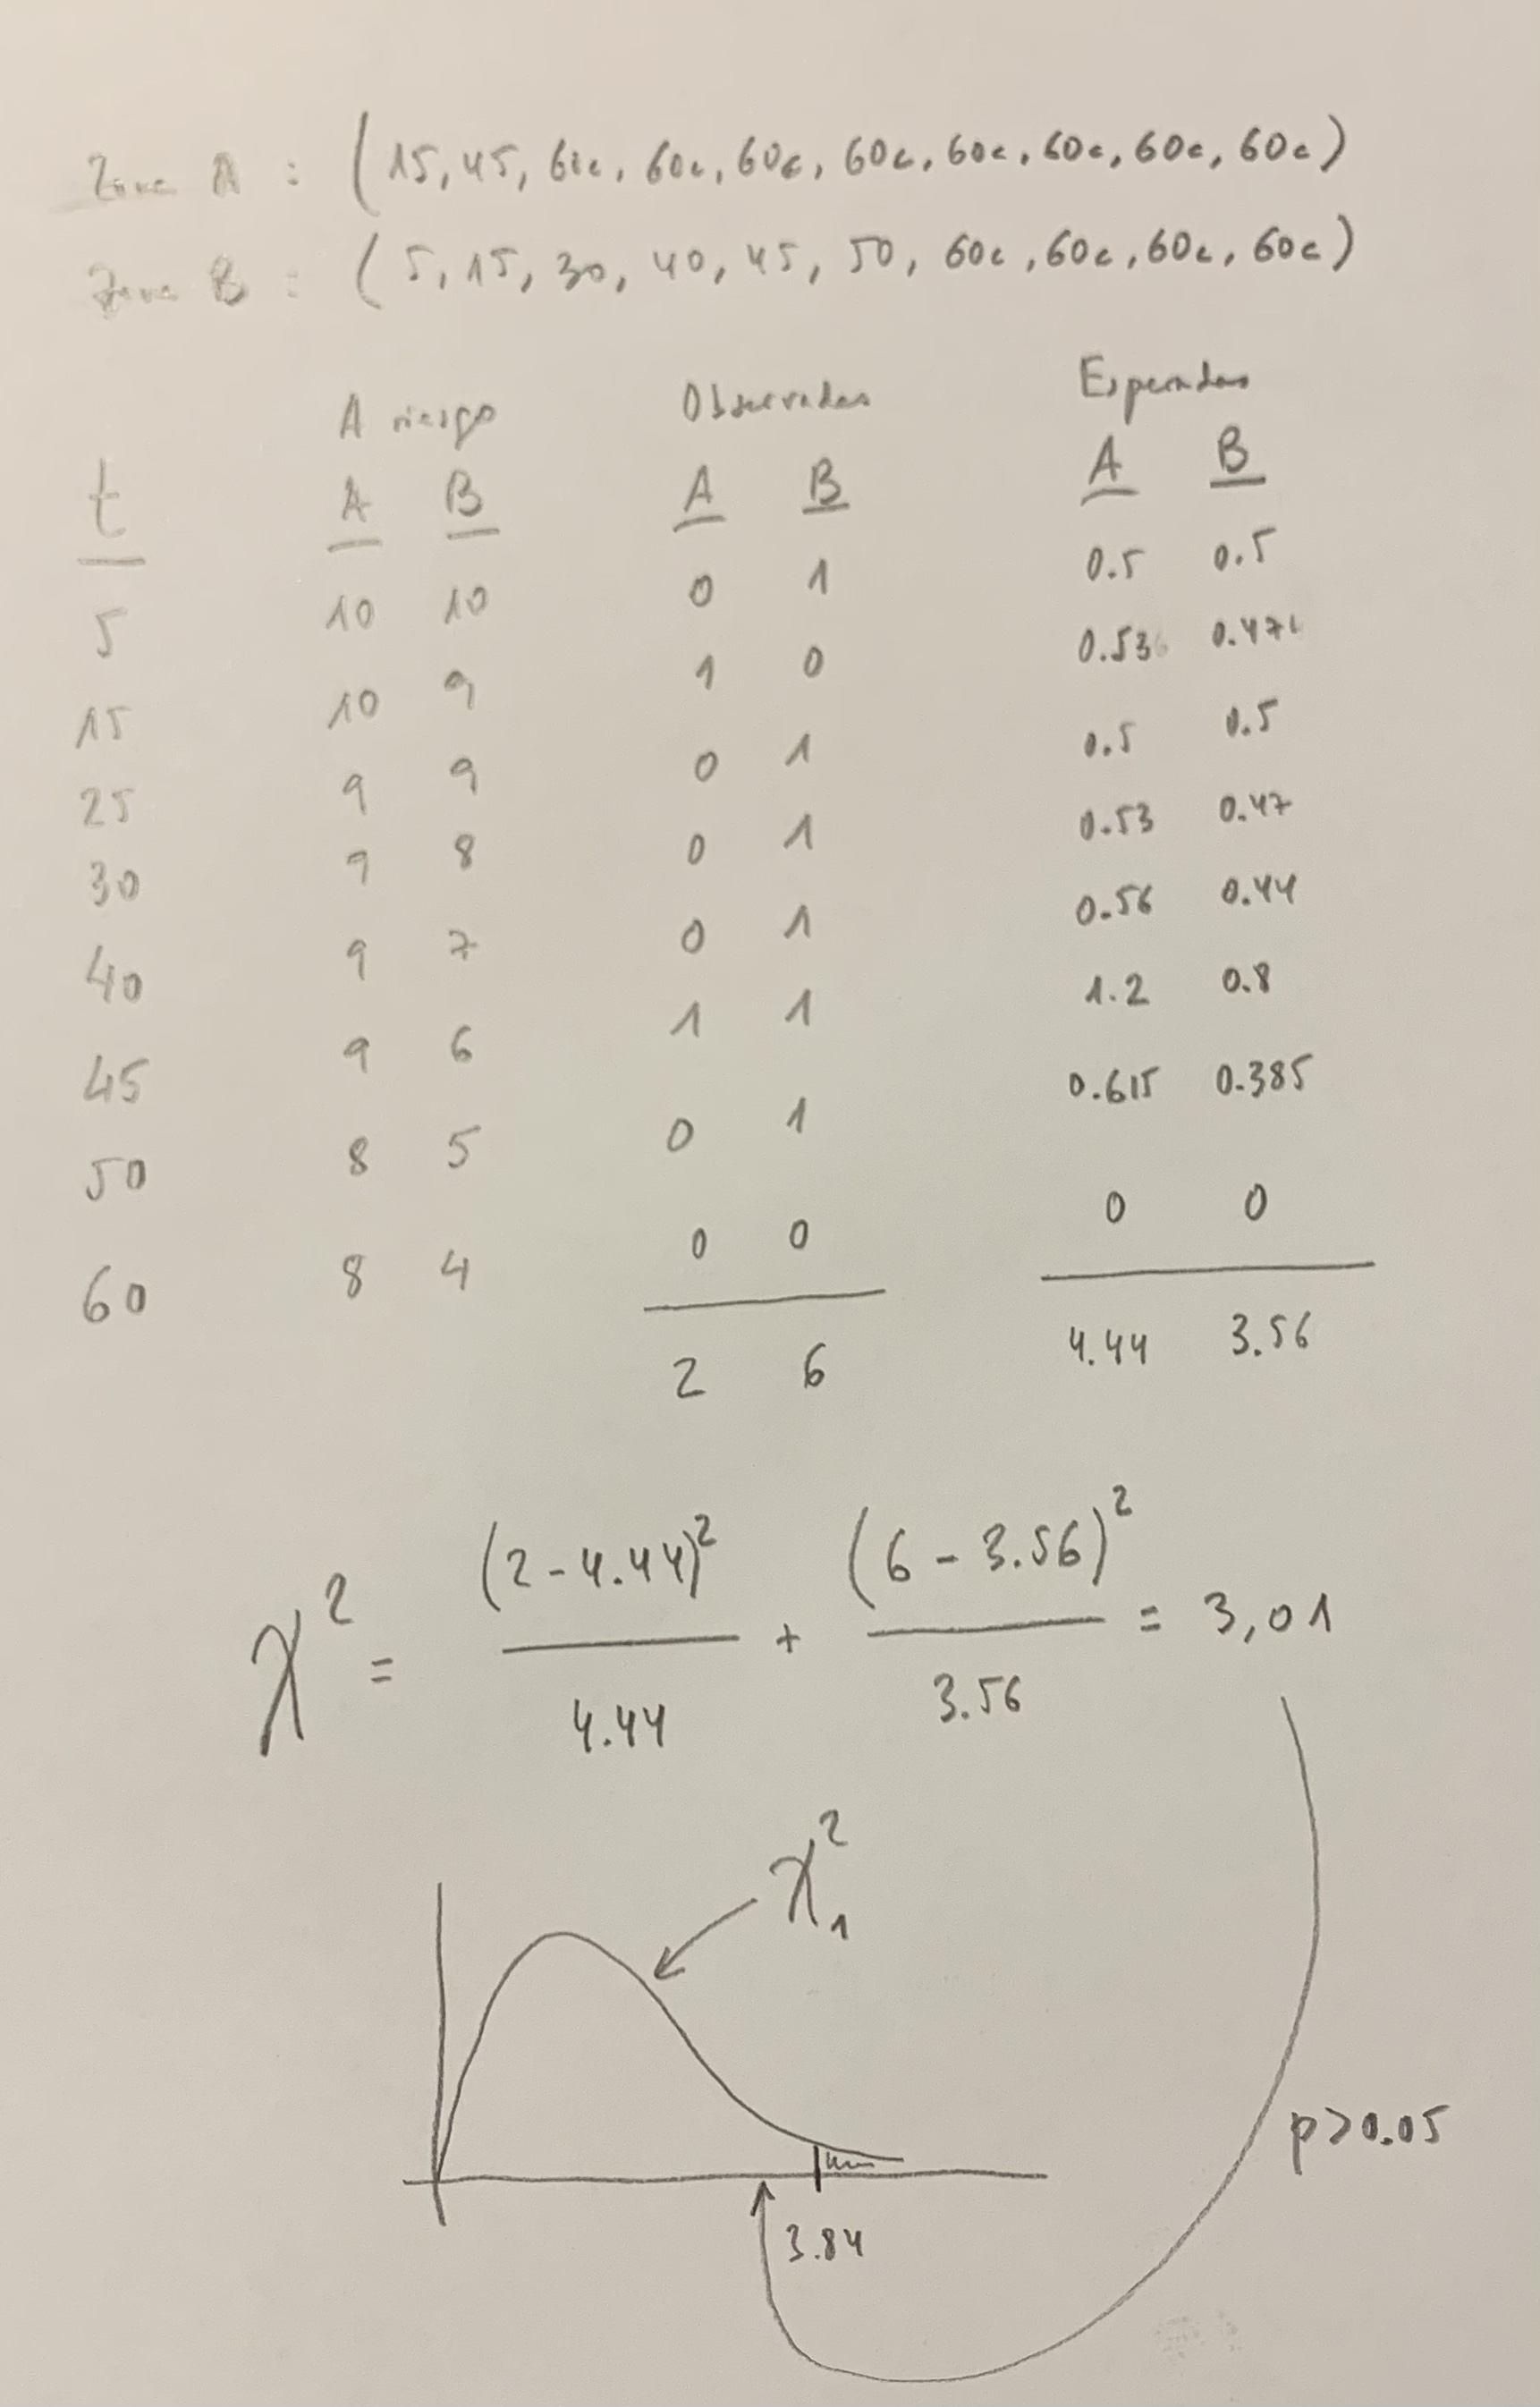 Zona A : (15, 45, 60c, 60c, 60c, 60c, 60c, 60c, 60c, 60c)
Zona B : (5, 15, 30, 40, 45, 50, 60c, 60c, 60c, 60c)
A riesgo Observadas Esperadas
t A B A B A B
5 10 10 0 1 0.5 0.5
15 10 9 1 0 0.53 0.47
25 9 9 0 1 0.5 0.5
30 9 8 0 1 0.53 0.47
40 9 7 0 1 0.56 0.44
45 9 6 1 1 1.2 0.8
50 8 5 0 1 0.615 0.385
60 8 4 0 0 0 0
2 6 4.44 3.56
χ² = (2-4.44)²/4.44 + (6-3.56)²/3.56 = 3,01
χ²₁
p>0.05
3.84